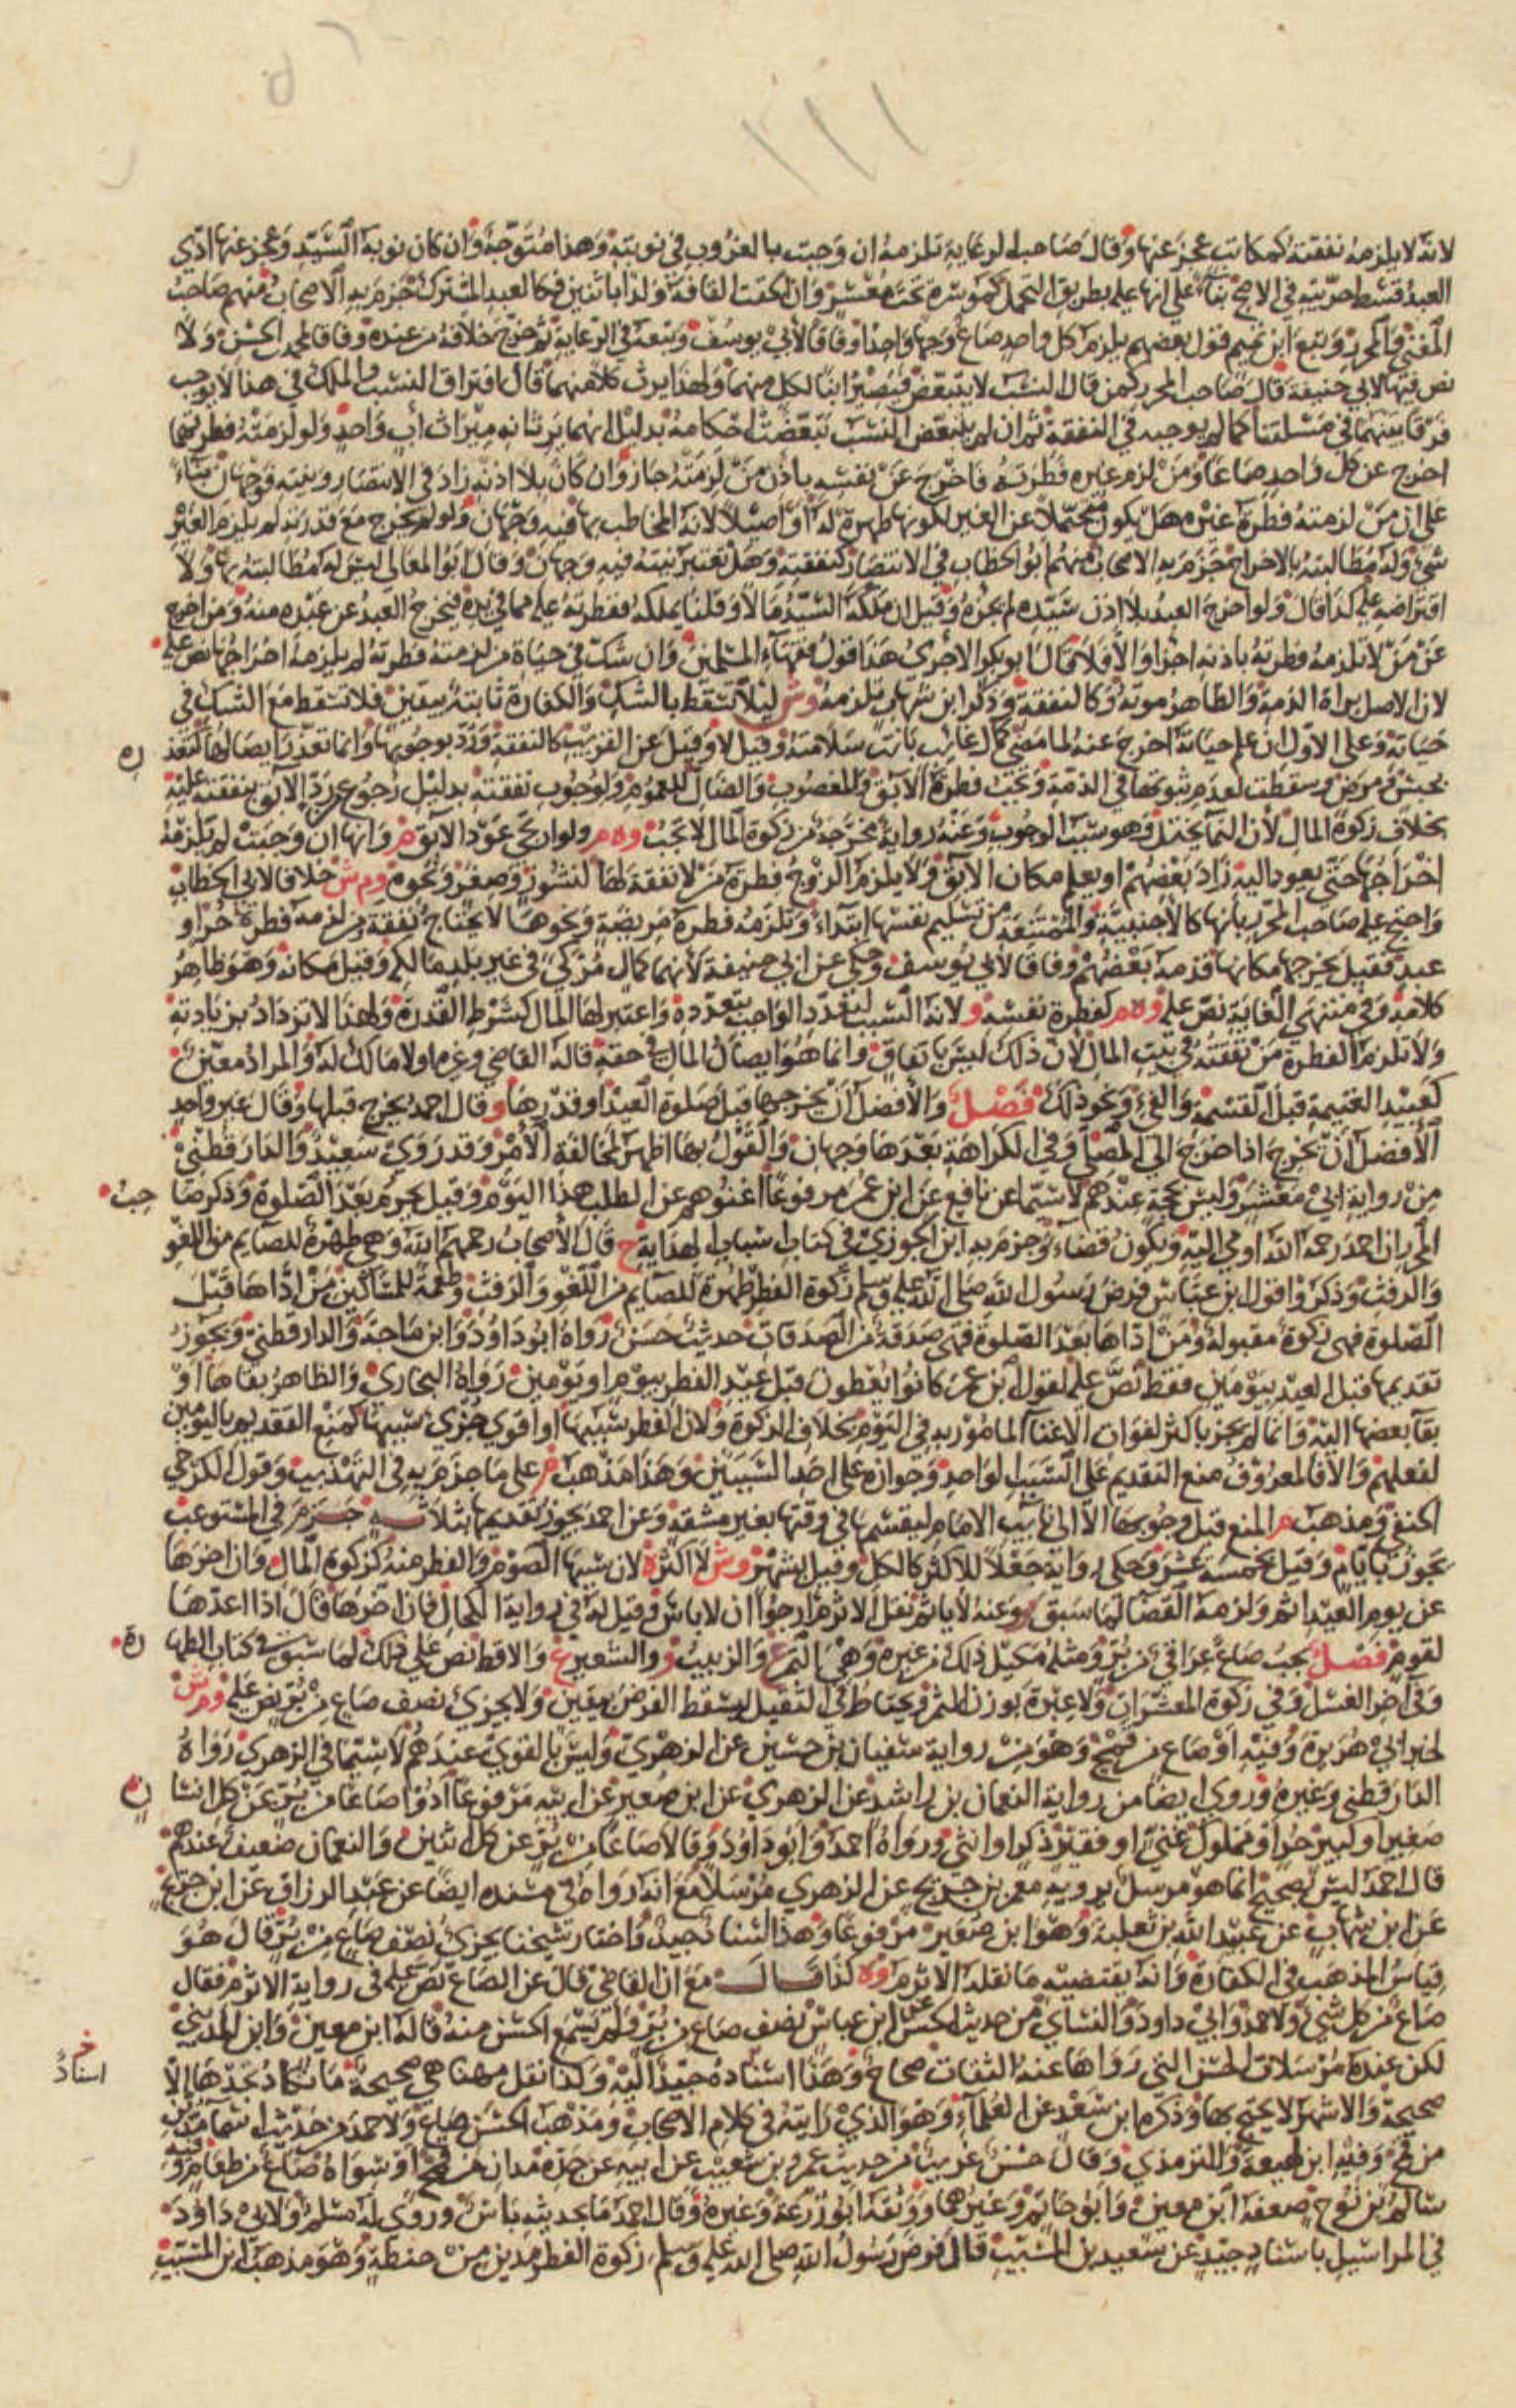 ١١١
لانه لا يلزمه نفقته كمكاتب عجز عنها وقال صاحب الرعاية تلزمه ان وجبت بالغروب في نوبته وهذا متوجه وان كان نوبة السيد وعجز عنها ادى
العبد قسط حريته في الاصح بناء على انها عليه بطريق التحمل كموسرة تحت معسر وان الحقت القافة ولدا باثنين فكالعبد المشترك جزم به الاصحاب منهم صاحب
المغني والمحرر وتبع ابن تميم قول بعضهم يلزم كل واحد صاع وجها واحدا وفاقا لابي يوسف وتبعه في الرعاية ثم خرج خلافه من عنده وفاقا لمحمد بن الحسن ولا
نص فيها لابي حنيفة قال صاحب المحرر كمن قال النسب لا يتبعض فيصير ابنا لكل منهما ولهذا يرث كلا منهما قال وافتراق النسب والملك في هذا لا يوجب
فرقا بينهما في مسئلتنا كما لم يوجبه في النفقة ثم ان لم يتبعض النسب تبعضت احكامه بدليل انهما يرثانه ميراث اب واحد ولو لزمته فطرتهما
اخرج عن كل واحد صاعا ومن لزم غيره فطرته فاخرج عن نفسه باذن من لزمته جاز وان كان بلا اذنه زاد في الانتصار ونيته فوجهان بناء
على ان من لزمته فطرة غيره هل يكون متحملا عن الغير لكونها طهرة له او اصيلا لانه المخاطب بها فيه وجهان ولو لم يخرج مع قدرته لم يلزم الغير
شيء وله مطالبته بالاخراج جزم به الاصحاب منهم ابو الخطاب في الانتصار كنفقته وهل تعتبر نيته فيه وجهان وقال ابو المعالي ليس له مطالبته بها ولا
اقتراضه عليه كذا قال ولو اخرج العبد بلا اذن سيده لم يجزه وقيل ان ملكه السيد مالا وقلنا يملكه ففطرته عليه مما في يده فيخرج العبد عن عبده منه ومن اخرج
عن من لا تلزمه فطرته باذنه اجزا والا فلا قال ابو بكر الاجري هذا قول فقهاء المسلمين وان شك في حياة من لزمته فطرته لم يلزمه اخراجها نص عليه
لان الاصل براة الذمة والظاهر موته وكالنفقة وذكر ابن شهاب تلزمه وش ليلا تسقط بالشك والكفارة ثابتة بيقين فلا تسقط مع الشك في
حياته وعلى الاول ان علم حياته اخرج عنه لما مضى كمال غائب بانت سلامته وقيل لا وقيل عن القريب كالنفقة ورد بوجوبها وانما تعذر ايصالها لتعذر
بحبس ومرض وسقطت لعدم ثبوتها في الذمة وتجب فطرة الابق والمغصوب والضال للعموم ولوجوب نفقته بدليل رجوع من رد الابق بنفقته عليه
بخلاف زكوة المال لان النما يختل وهو سبب الوجوب وعنه رواية مخرجة من زكوة المال لا تجب وه م ولو ارتجى عود الابق م وانها ان وجبت لم يلزمه
اخراجها حتى يعود اليه زاد بعضهم او يعلم مكان الابق ولا يلزم الزوج فطرة من لا نفقة لها لنشوز وصغر ونحوه وم ش خلافا لابي الخطاب
واحتج عليه صاحب المحرر بانها كالاجنبية والممتنعة من تسليم نفسها ابتداء وتلزمه فطرة مريضة ونحوها لا يحتاج نفقة ومن لزمه فطرة حر او
عبد فقيل يخرجها مكانها قدمه بعضهم وفاقا لابي يوسف وحكي عن ابي حنيفة لانهما كمال مزكى في غير بلد مالكه وقيل مكانه وهو ظاهر
كلامه وفي منتهى الغاية نص عليه وه م كفطرة نفسه و لانه السبب لتعدد الواجب بتعدده واعتبر لها المال كشرط القدرة ولهذا لا تزداد بزيادته
ولا تلزم الفطرة من نفقته في بيت المال لان ذلك ليس بانفاق وانما هو ايصال المال في حقه قاله القاضي وغيره او لا مالك له والمراد معين
كعبيد الغنيمة قبل القسمة والفيء ونحو ذلك فصل والافضل ان يخرجها قبل صلوة العيد او قدرها و قال احمد يخرج قبلها وقال غير واحد
الافضل ان تخرج اذا خرج الى المصلى وفي الكراهة بعدها وجهان والقول بها اظهر لمخالفة الامر وقد روى سعيد والدارقطني
من رواية ابي معشر وليس بحجة عندهم لا سيما عن نافع عن ابن عمر مرفوعا اغنوهم عن الطلب هذا اليوم وقيل يحرم بعد الصلوة وذكر صا حب
المحرر ان احمد رحمه الله اومى اليه ويكون قضاء وجزم به ابن الجوزي في كتاب اسباب الهداية ح قال الاصحاب رحمهم الله وهي طهرة للصايم من اللغو
والرفث وذكروا قول ابن عباس فرض رسول الله صلى الله عليه وسلم زكوة الفطر طهرة للصايم من اللغو والرفث وطعمة للمساكين من اداها قبل
الصلوة فهي زكوة مقبولة ومن اداها بعد الصلوة فهي صدقة من الصدقات حديث حسن رواه ابو داود وابن ماجة والدارقطني ويجوز
تقديمها قبل العيد بيومين فقط نص عليه لقول ابن عمر كانوا يعطون قبل عيد الفطر بيوم او يومين رواه البخاري والظاهر بقاها او
بقا بعضها اليه وانما لم يجز باكثر لفوات الاغنا المامور به في اليوم بخلاف الزكوة ولان الفطر سببها او اقوى جزئي سببها كمنع التقديم باليومين
لفعلهم والا فالمعروف منع التقديم على السبب الواحد وجوازه على احد السببين وهذا مذهب م على ما جزم به في التهذيب وقول الكرخي
الحنفي ومذهب م المنع قبل وجوبها الا الى نائب الامام ليقسمها في وقتها بغير مشقة وعن احمد يجوز تقديمها بثلاثة جزم في المستوعب
يجوز بايام وقيل بخمسة عشر وحكي رواية جعلا للاكثر كالكل وقيل بشهر وش لا اكثر ه لان سببها الصوم والفطر منه كزكوة المال وان اخرها
عن يوم العيد اثم ولزمه القضا لما سبق وعنه لا ياثم نقل الاثرم ارجو ان لا باس وقيل له في رواية الكحال فان اخرها قال اذا اعدها
لقوم فصل يجب صاع عراقي من بر ومثله مكيل ذلك من غيره وهي التمر ع والزبيب و والشعير ع والاقط نص على ذلك لما سبق في كتاب الطها رة
وفي اخر الغسل وفي زكوة المعشرات ولا عبرة بوزن التمر ويحتاط في الثقيل ليسقط الفرض بيقين ولا يجزي نصف صاع من بر نص عليه وم ش
لخبر ابي هريرة وفيه او صاع من قمح وهو من رواية سفيان بن حسين عن الزهري وليس بالقوي عندهم لا سيما في الزهري رواه
الدارقطني وغيره وروي ايضا من رواية النعمان بن راشد عن الزهري عن ابن صعير عن ابيه مرفوعا ادوا صاعا من بر عن كل انسا ن
صغير او كبير حر او مملوك غني او فقير ذكر او انثى ورواه احمد وابو داود وقالا صاعا من بر عن كل اثنين والنعمان ضعيف عندهم
قال احمد ليس بصحيح انما هو مرسل يرويه معمر بن جريج عن الزهري مرسلا مع انه رواه في مسنده ايضا عن عبد الرزاق عن ابن جريج
عن ابن شهاب عن عبد الله بن ثعلبة وهو ابن صعير مرفوعا وهذا اسناد جيد واختار شيخنا يجزي نصف صاع من بر قال هو
قياس المذهب في الكفارة وانه يقتضيه ما نقله الاثرم وه كذا قال مع ان القاضي قال عن الصاع نص عليه في رواية الاثرم فقال
صاع من كل شيء ولاحمد وابي داود والنساي من حديث الحسن عن ابن عباس نصف صاع من بر ولم يسمع الحسن منه قاله ابن معين وابن المديني
لكن عنده مرسلات الحسن التي رواها عنه الثقات صحاح وهذا اسناده جيد اليه وكذا نقل مهنا هي صحيحة ما نكاد نجدها الا
خ
اسناد
صحيحة والاشهر لا يحتج بها وذكره ابن سعد عن العلماء وهو الذي رايته في كلام الاصحاب ومذهب الحسن صاع ولاحمد من حديث اسما مدين
من قمح وفيه ابن لهيعة والترمذي وقال حسن غريب من حديث عمرو بن شعيب عن ابيه عن جده مدان من قمح او سواه صاع من طعام وفيه
سالم بن نوح ضعفه ابن معين وابو حاتم وغيرهما ووثقه ابو زرعة وغيره وقال احمد ما بحديثه باس وروى له مسلم ولابي داود
في المراسيل باسناد جيد عن سعيد بن المسيب قال فرض رسول الله صلى الله عليه وسلم زكوة الفطر مدين من حنطة وهو مذهب ابن المسيب